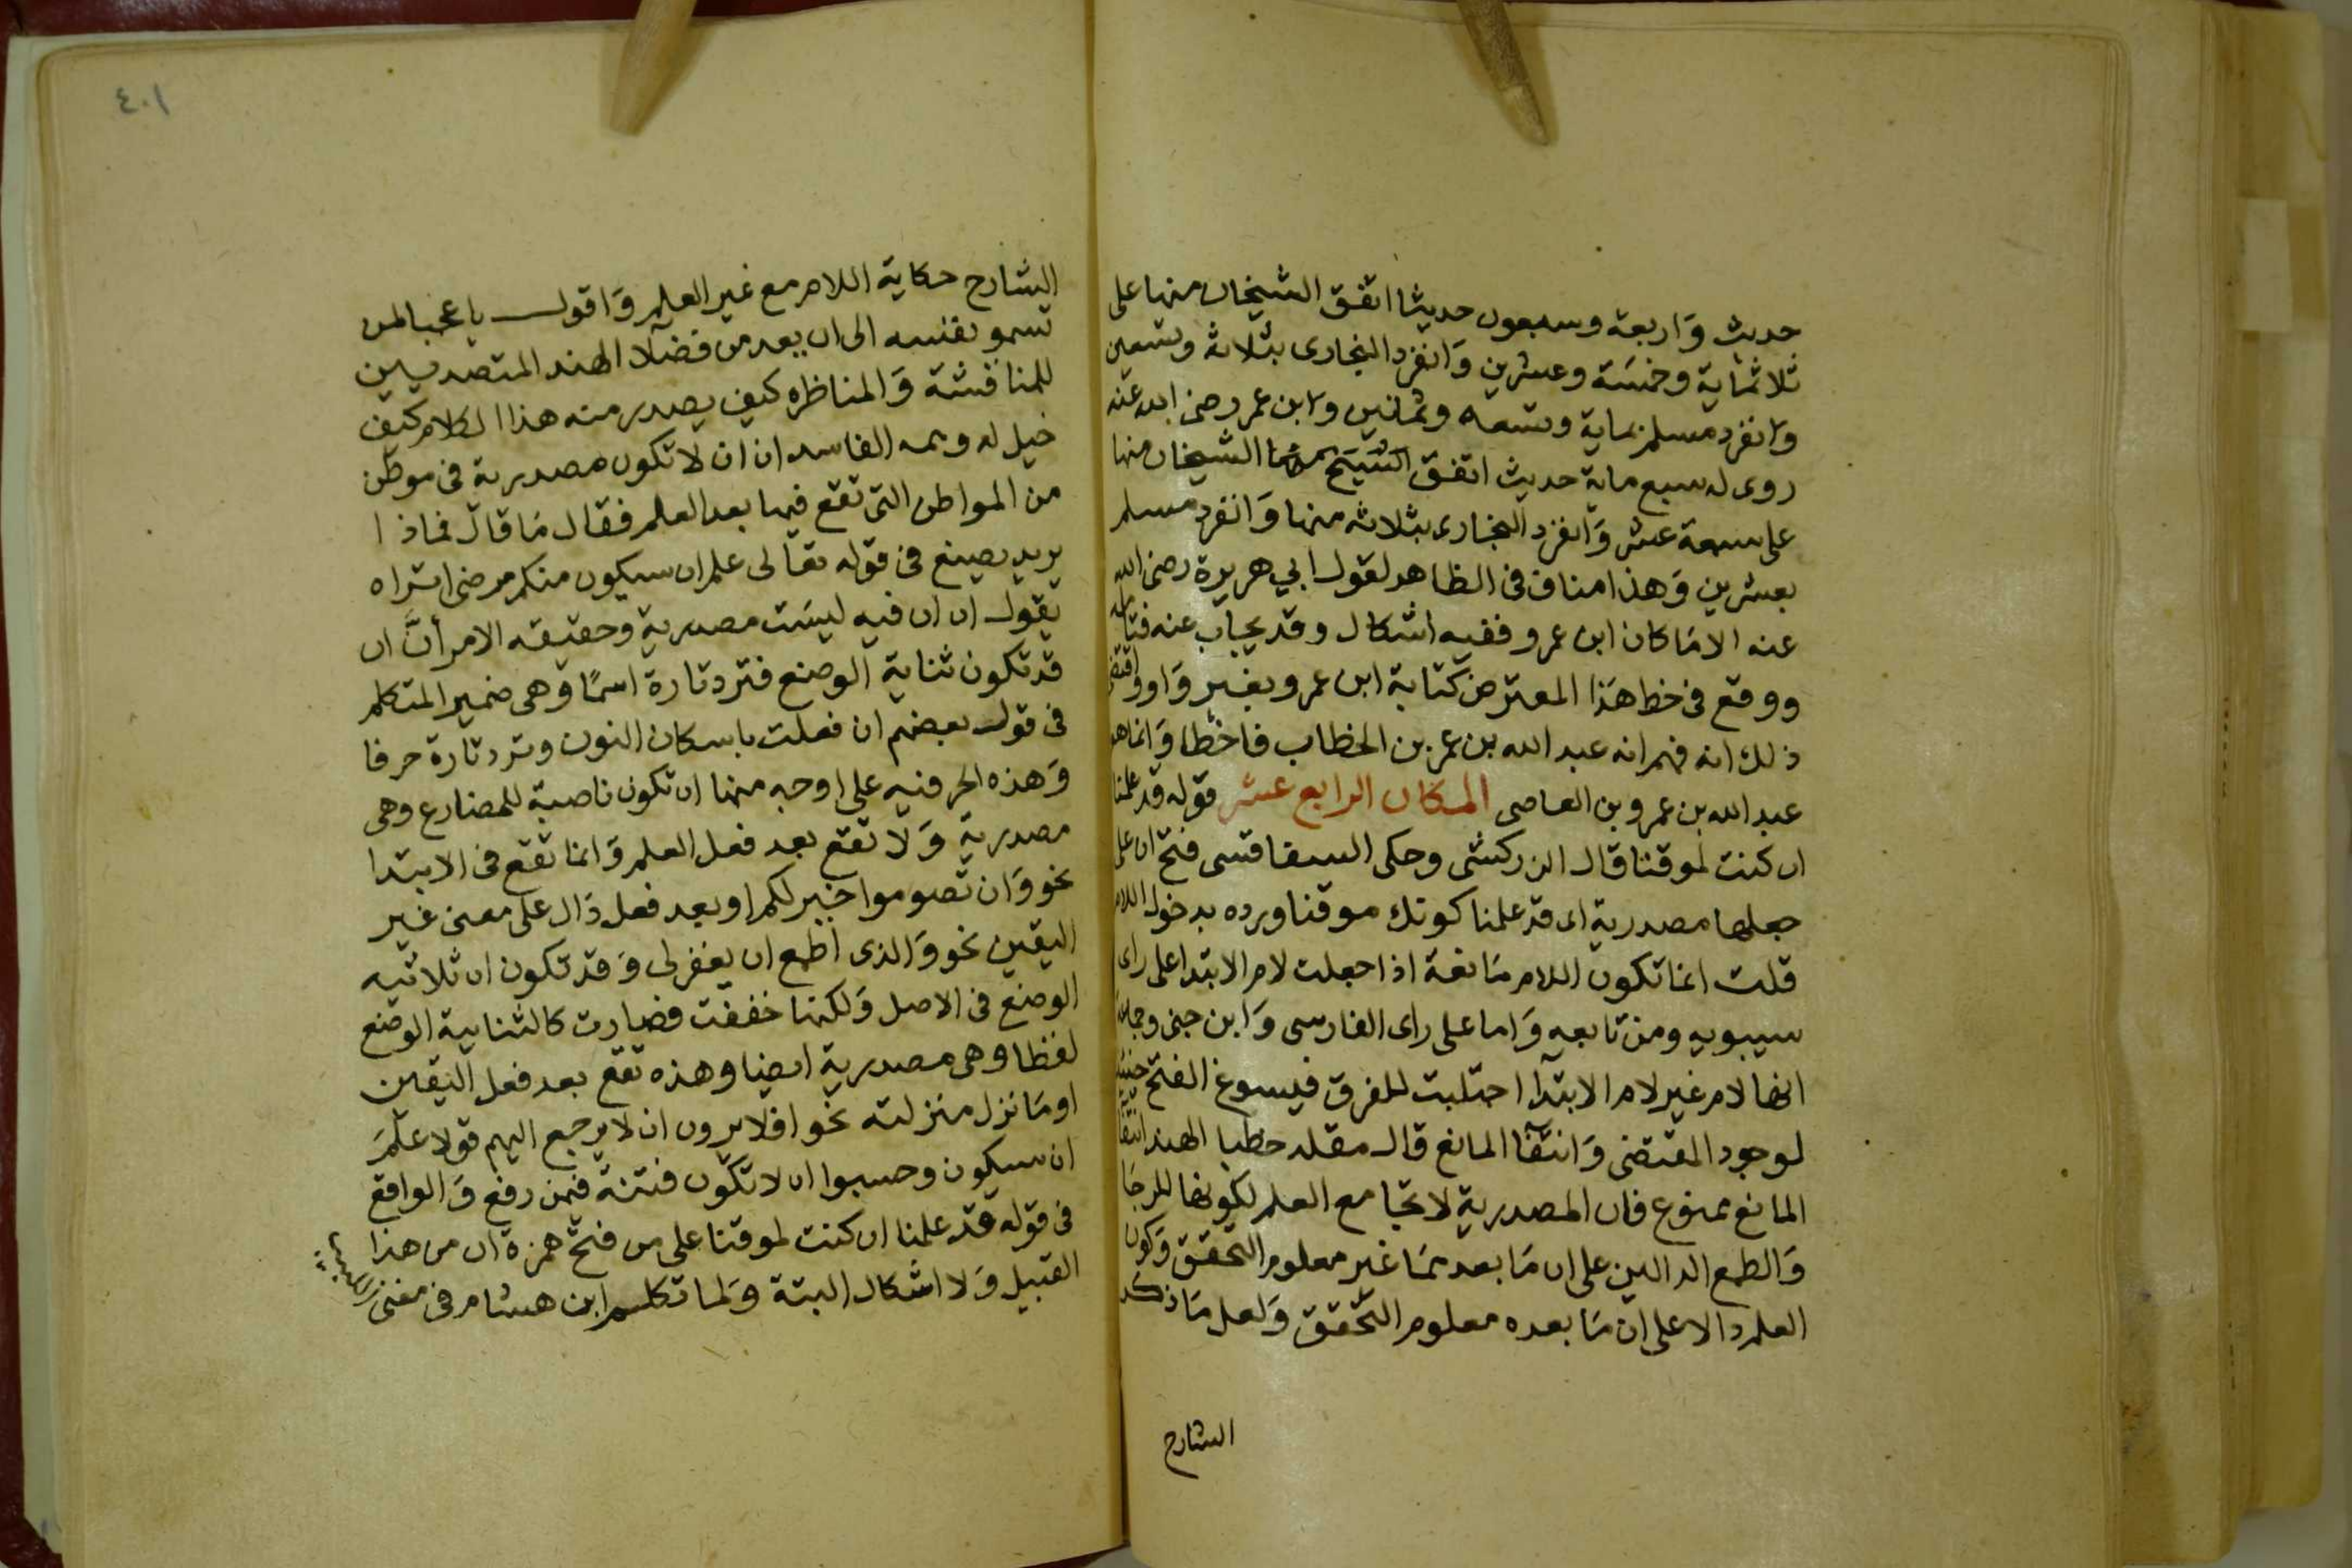 حديث وَاربعة وسبعون حديثا اتفق الشيخان منها على
ثلاثماية وخمسَة وعشرين وَانفرد البخارى بثلاثة وتسعين
وانفرد مسلم بماية وتسعة وثمانين وابن عمر رضى الله عنه
روى له سبع ماية حديث اتفق الشيخان منها
على سبعة عشر وَانفرد البخارى بثلاثه منها وَانفرد مسلم
بعشرين وَهذا مناف فى الظاهر لقول ابي هريرة رضى الله
عنه الا مَا كان ابن عمرو ففيه اشكال وقد يجاب عنه فتأمله
ووقع فى خط هَذا المعترض كتابة ابن عمرو بغير وَاو واقتضى
ذلك انه فهم انه عبد الله بن عمر بن الخطاب فاخطا وَانما هو
عبد الله بن عمرو بن العاصى المكان الرابع عشر قوله قد علمنا
ان كنت لموقنا قال الزركشى وحكى السفاقسى فتح ان على
جعلها مصدرية اى قد علمنا كونك موقنا ورده بدخول اللام
قلت انما تكون اللام مَانعة اذا جعلت لام الابتدا على راى
سيبويه ومن تابعه وَاما على راى الفارسى وَابن جنى وجماعة
انها لام غير لام الابتدا اجتلبت للفرق فيسوغ الفتح حينئذ
لوجود المقتضى وَانتفا المانع قال مقلد خطبا الهند انتفا
المانع ممنوع فان المصدرية لا تجامع العلم لكونها للرجَا
وَالطمع الدالين على ان مَا بعدهمَا غير معلوم التحقق وَكون
العلم دالا على ان مَا بعده معلوم التحقق وَلعل مَا ذكر
الشارح
٤٠١
الشارح حكاية اللام مع غير العلم وَاقول يا عجبا لمن
تسمو نفسه الى ان يعد من فضلا الهند المتصديين
للمناقشة وَالمناظره كيف يصدر منه هذا الكلام كيف
خيل له وهمه الفاسد ان ان لا تكون مصدرية فى موطن
من المواطن التى تقع فيها بعد العلم فقال مَا قال فماذا
يريد يصنع فى قوله تعَالى علم ان سيكون منكم مرضى اتراه
يقول ان ان فيه ليسَت مصدرية وحقيقه الامر أنَّ ان
قد تكون ثنايية الوضع فترد تارة اسمًا وَهى ضمير المتكلم
فى قول بعضهم ان فعلت باسكان النون وترد تارة حرفا
وَهذه الحرفيه على اوجه منها ان تكون ناصبة للمضارع وهى
مصدرية وَلا تقع بعد فعل العلم وَانما تقع فى الابتدا
نحو وَان تصوموا خير لكم او بعد فعل دَال على معنى غير
اليقين نحو وَالذى اطمع ان يغفر لى وَقد تكون ان ثلاثيه
الوضع فى الاصل وَلكنها خففت فصارت كالثنايية الوضع
لفظا وهى مصدرية ايضا وهذه تقع بعد فعل اليقين
او مَا نزل منزلته نحو افلا يرون ان لا يرجع اليهم قولا علمَ
ان سيكون وحسبوا ان لا تكون فتنة فيمن رفع وَالواقع
فى قوله قد علمنا ان كنت لموقنا على من فتح همزة ان من هذا
القبيل وَلا اشكال البتة وَلما تكلم ابن هشام فى مغنى اللبيب